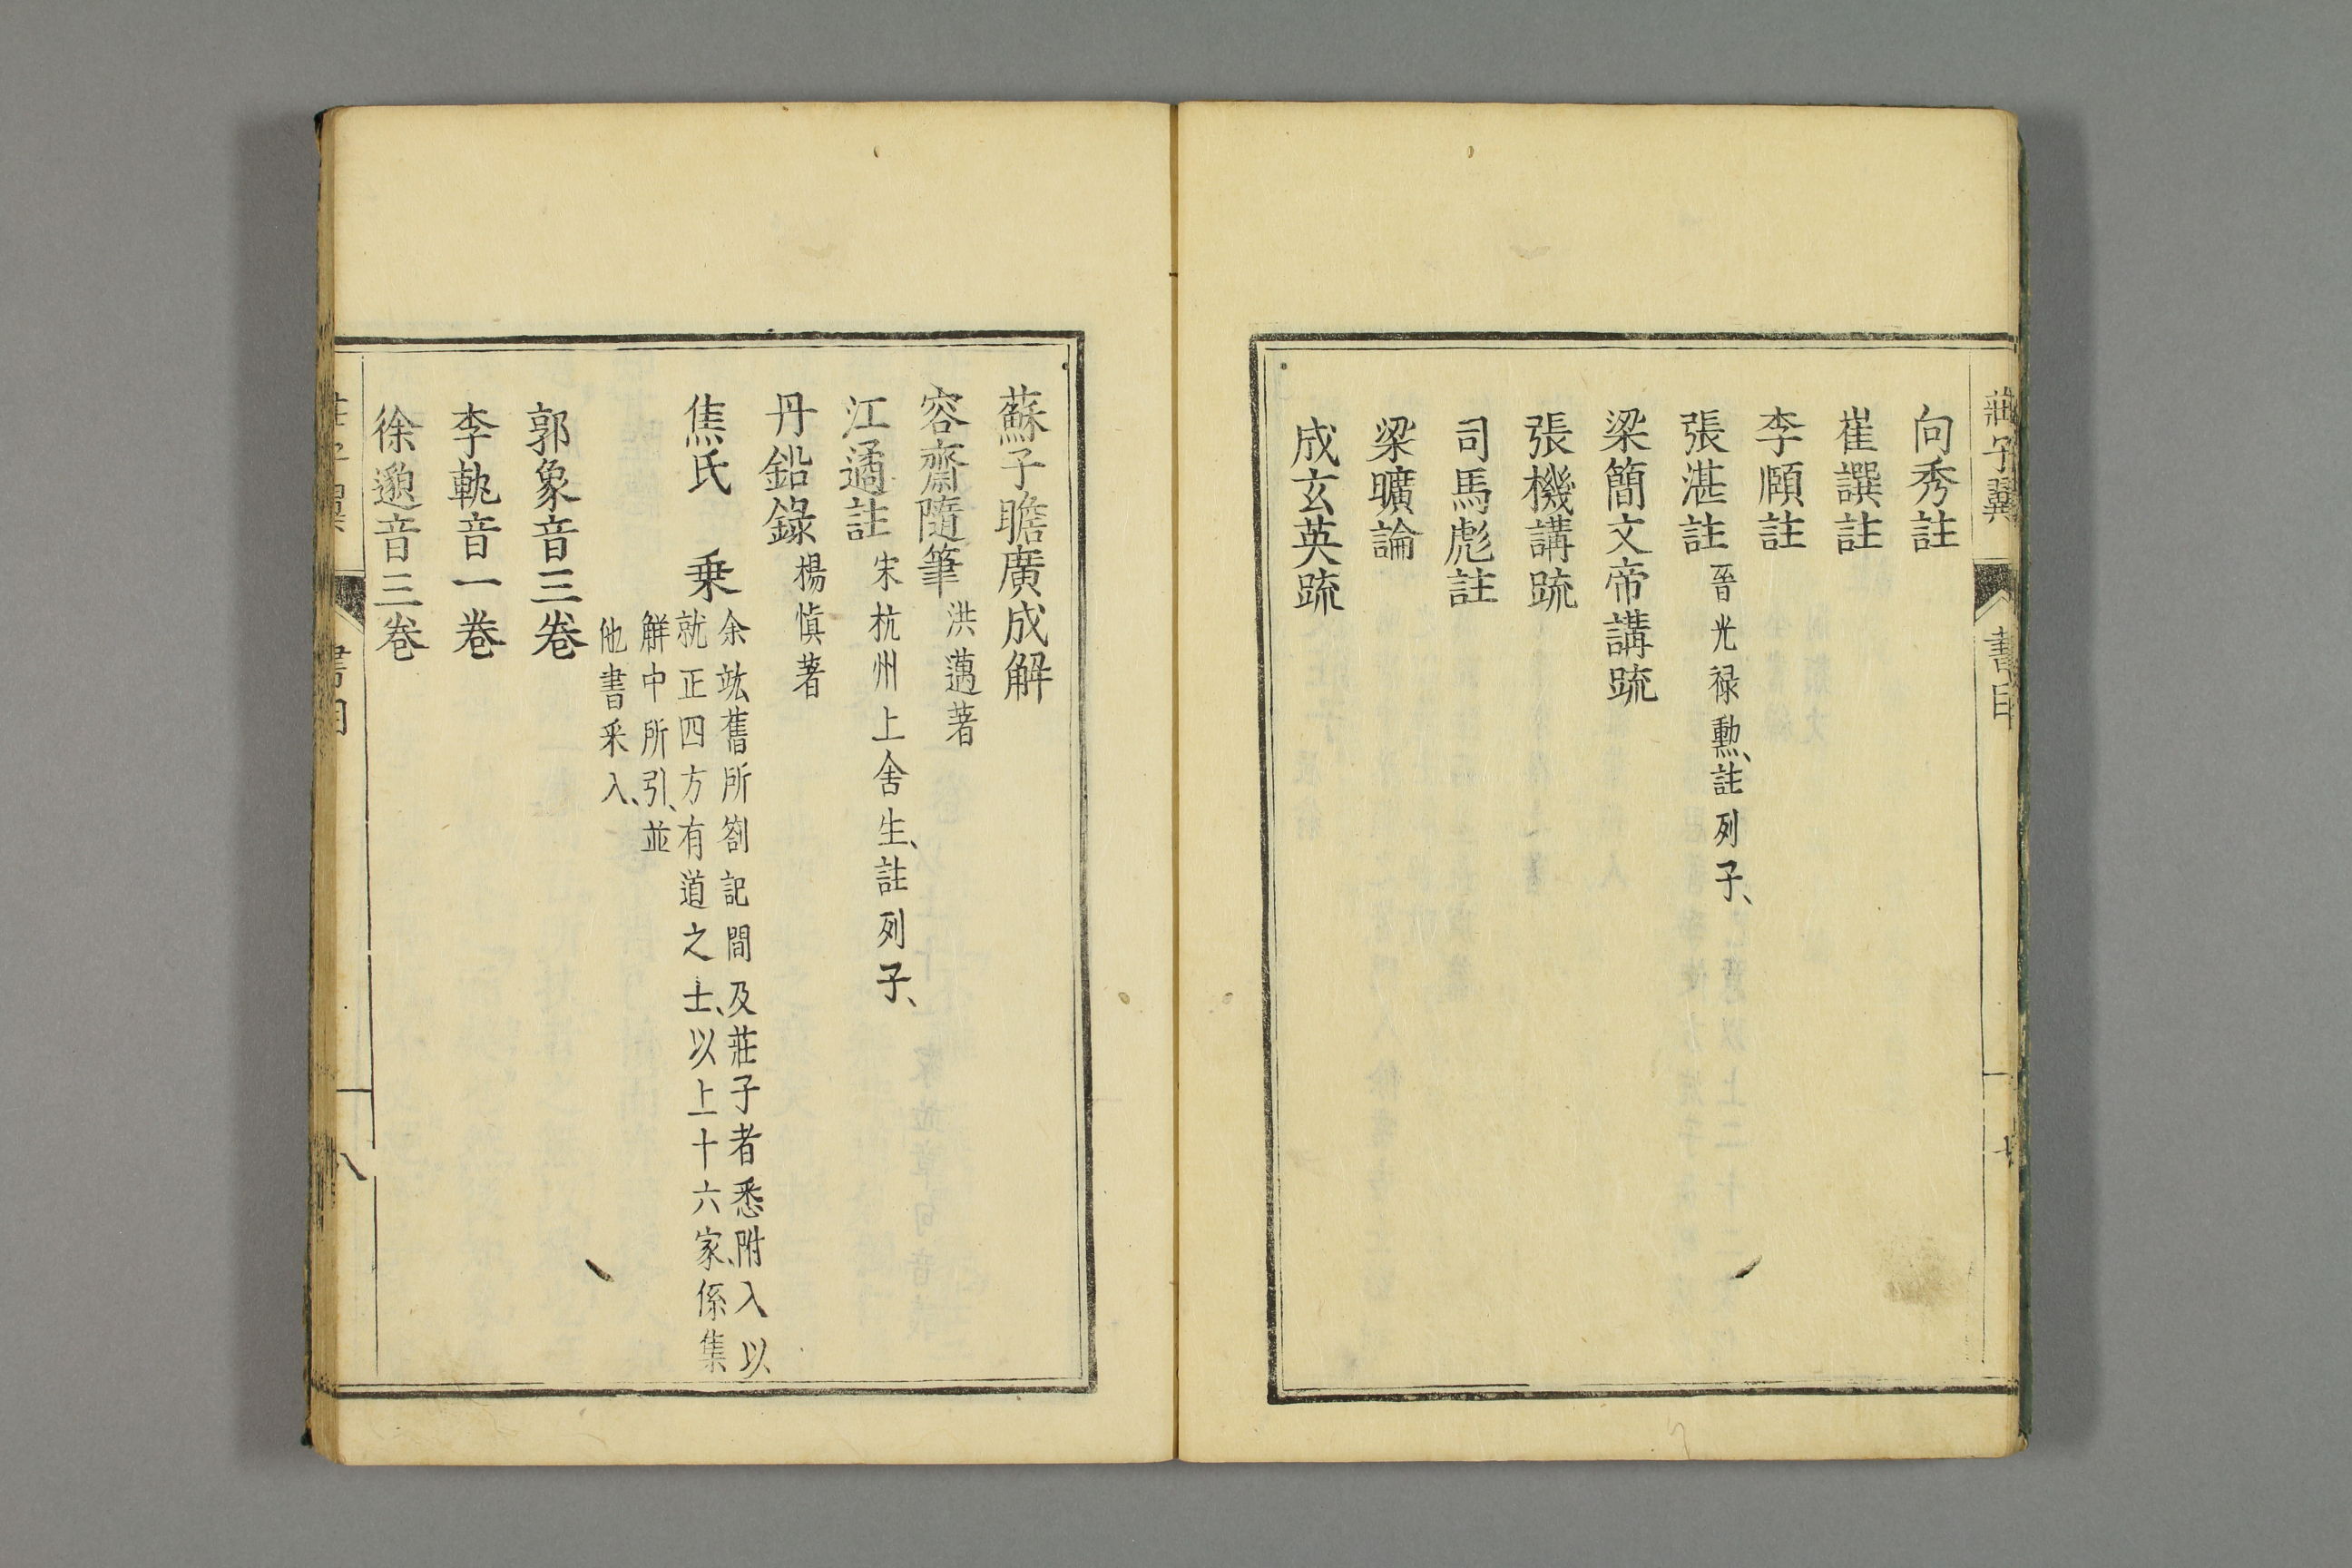 莊子翼
書目
向秀註
崔譔註
李頤註
張湛註晉光禄勲、註列子、
梁簡文帝講疏
張機講疏
司馬彪註
梁曠論
成玄英疏
蘇子瞻廣成解
容齋隨筆洪邁著
江遹註宋杭州上舍生、註列子、
丹鉛錄楊慎著
焦氏 乗
余竑舊所劄記間及莊子者悉附入以
就正四方有道之士、以上十六家、係集
解中所引、並
他書采入、
郭象音三卷
李軌音一卷
徐邈音三卷
書目
八